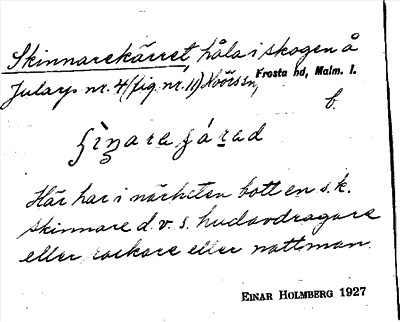 Skinnarekärret, håla i skogen å
Jularp nr. 4 (fig. nr. 11) Höörs sn, Frosta hd, Malm. l.
b.
Här har i närheten bott en s.k.
skinnare d.v.s. hudavdragare
eller rackare eller nattman.
EINAR HOLMBERG 1927